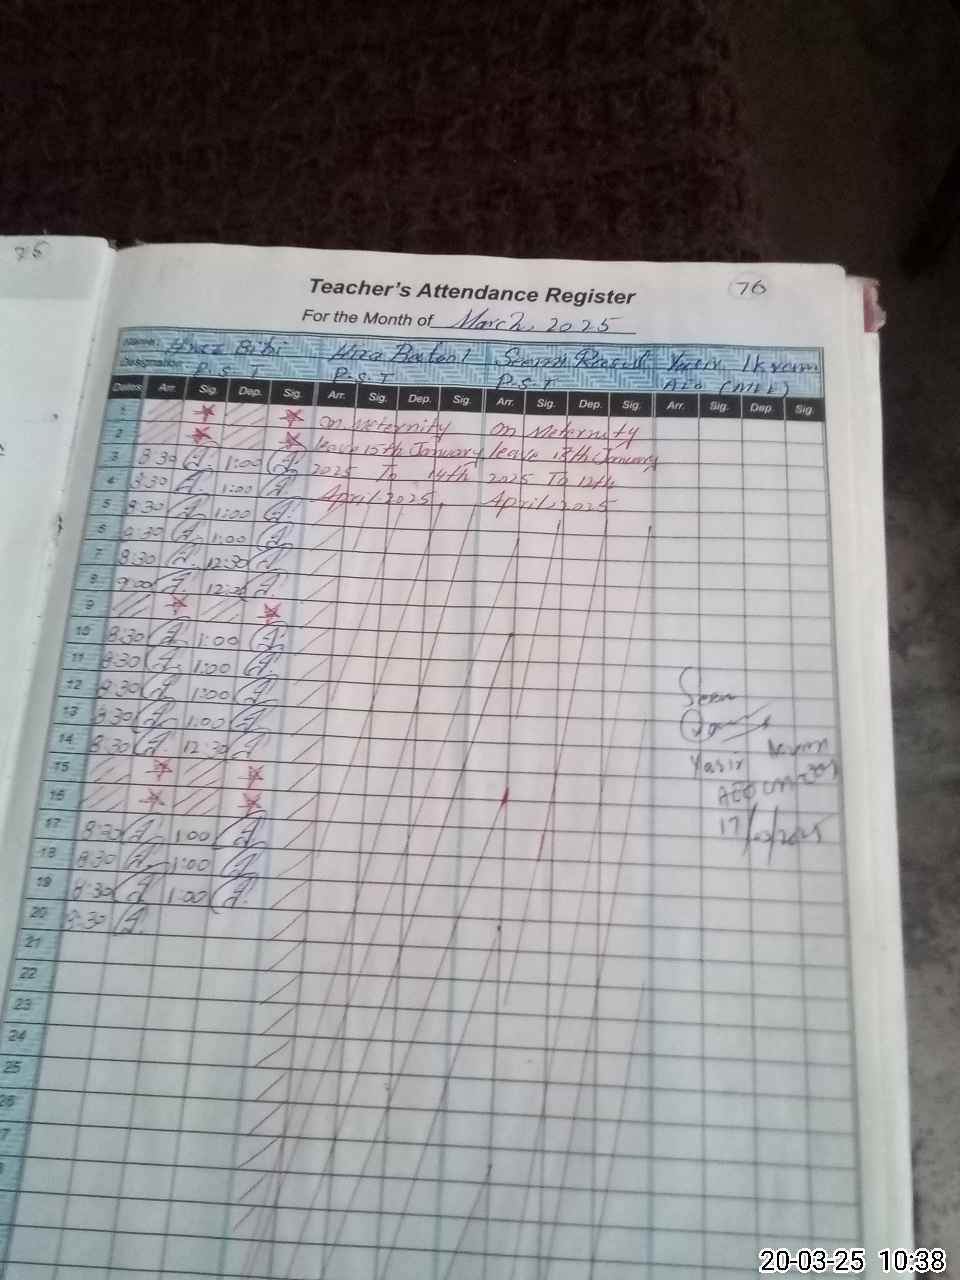 75
76
Teacher's Attendance Register
For the Month of March, 2025
Name: Bibi Hira Batool Seemi Rasul Yasir Ikram
Designation: P.S.T P.S.T P.S.T AEO
Dates Arr. Sig. Dep. Sig. Arr. Sig. Dep. Sig. Arr. Sig. Dep. Sig. Arr. Sig. Dep. Sig.
1 on Meternity on Meternity
2 leave 15th January leave 13th January
3 8:30 1:00 2025 To 14th 2025 To 12th
4 8:30 1:00 April-2025. April,2025
5 8:30 1:00
6 8:30 1:00
7 8:30 12:30
8 9:00 12:30
9
10 8:30 1:00
11 8:30 1:00
12 8:30 1:00
13 8:30 1:00
14 8:30 12:30
15
16
17 8:30 1:00
18 8:30 1:00
19 8:30 1:00
20 8:30
21
22
23
24
25
26
Seen
Yasir Ikram
AEO
20-03-25 10:38